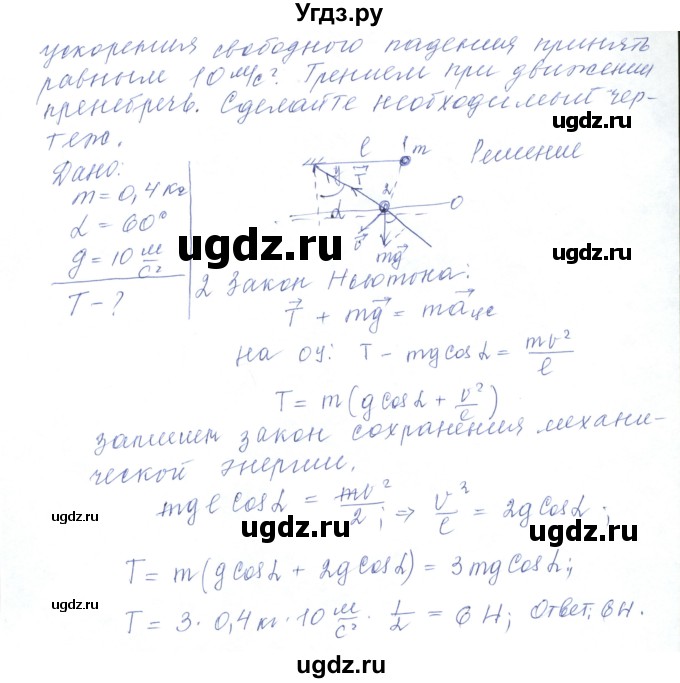 Угдз.ру
ускорения свободного падения принять
равным 10 м/с². Трением при движении
пренебречь. Сделайте необходимый чер-
теж.
ugdz.ru
Дано:
m = 0,4 кг
α = 60°
g = 10 м/с²
T - ?
l
1 m
Решение
y
T
2
α
O
v
mg
ugdz.ru
ugdz.ru
2 Закон Ньютона:
T⃗ + mg⃗ = ma⃗цс
на оу: T - mg cos α = mv²/l
T = m(g cos α + v²/l)
запишем закон сохранения механи-
ческой энергии.
mgl cos α = mv²/2; ⇒ v²/l = 2g cos α;
ugdz.ru
ugdz.ru
T = m(g cos α + 2g cos α) = 3mg cos α;
ugdz.ru
T = 3 · 0,4 кг · 10 м/с² · 1/2 = 6 Н; Ответ: 6 Н.
ugdz.ru
ugdz.ru